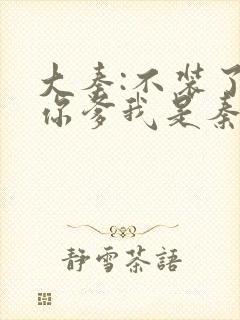 大秦:不装了
你爹我是秦
静雪茶語